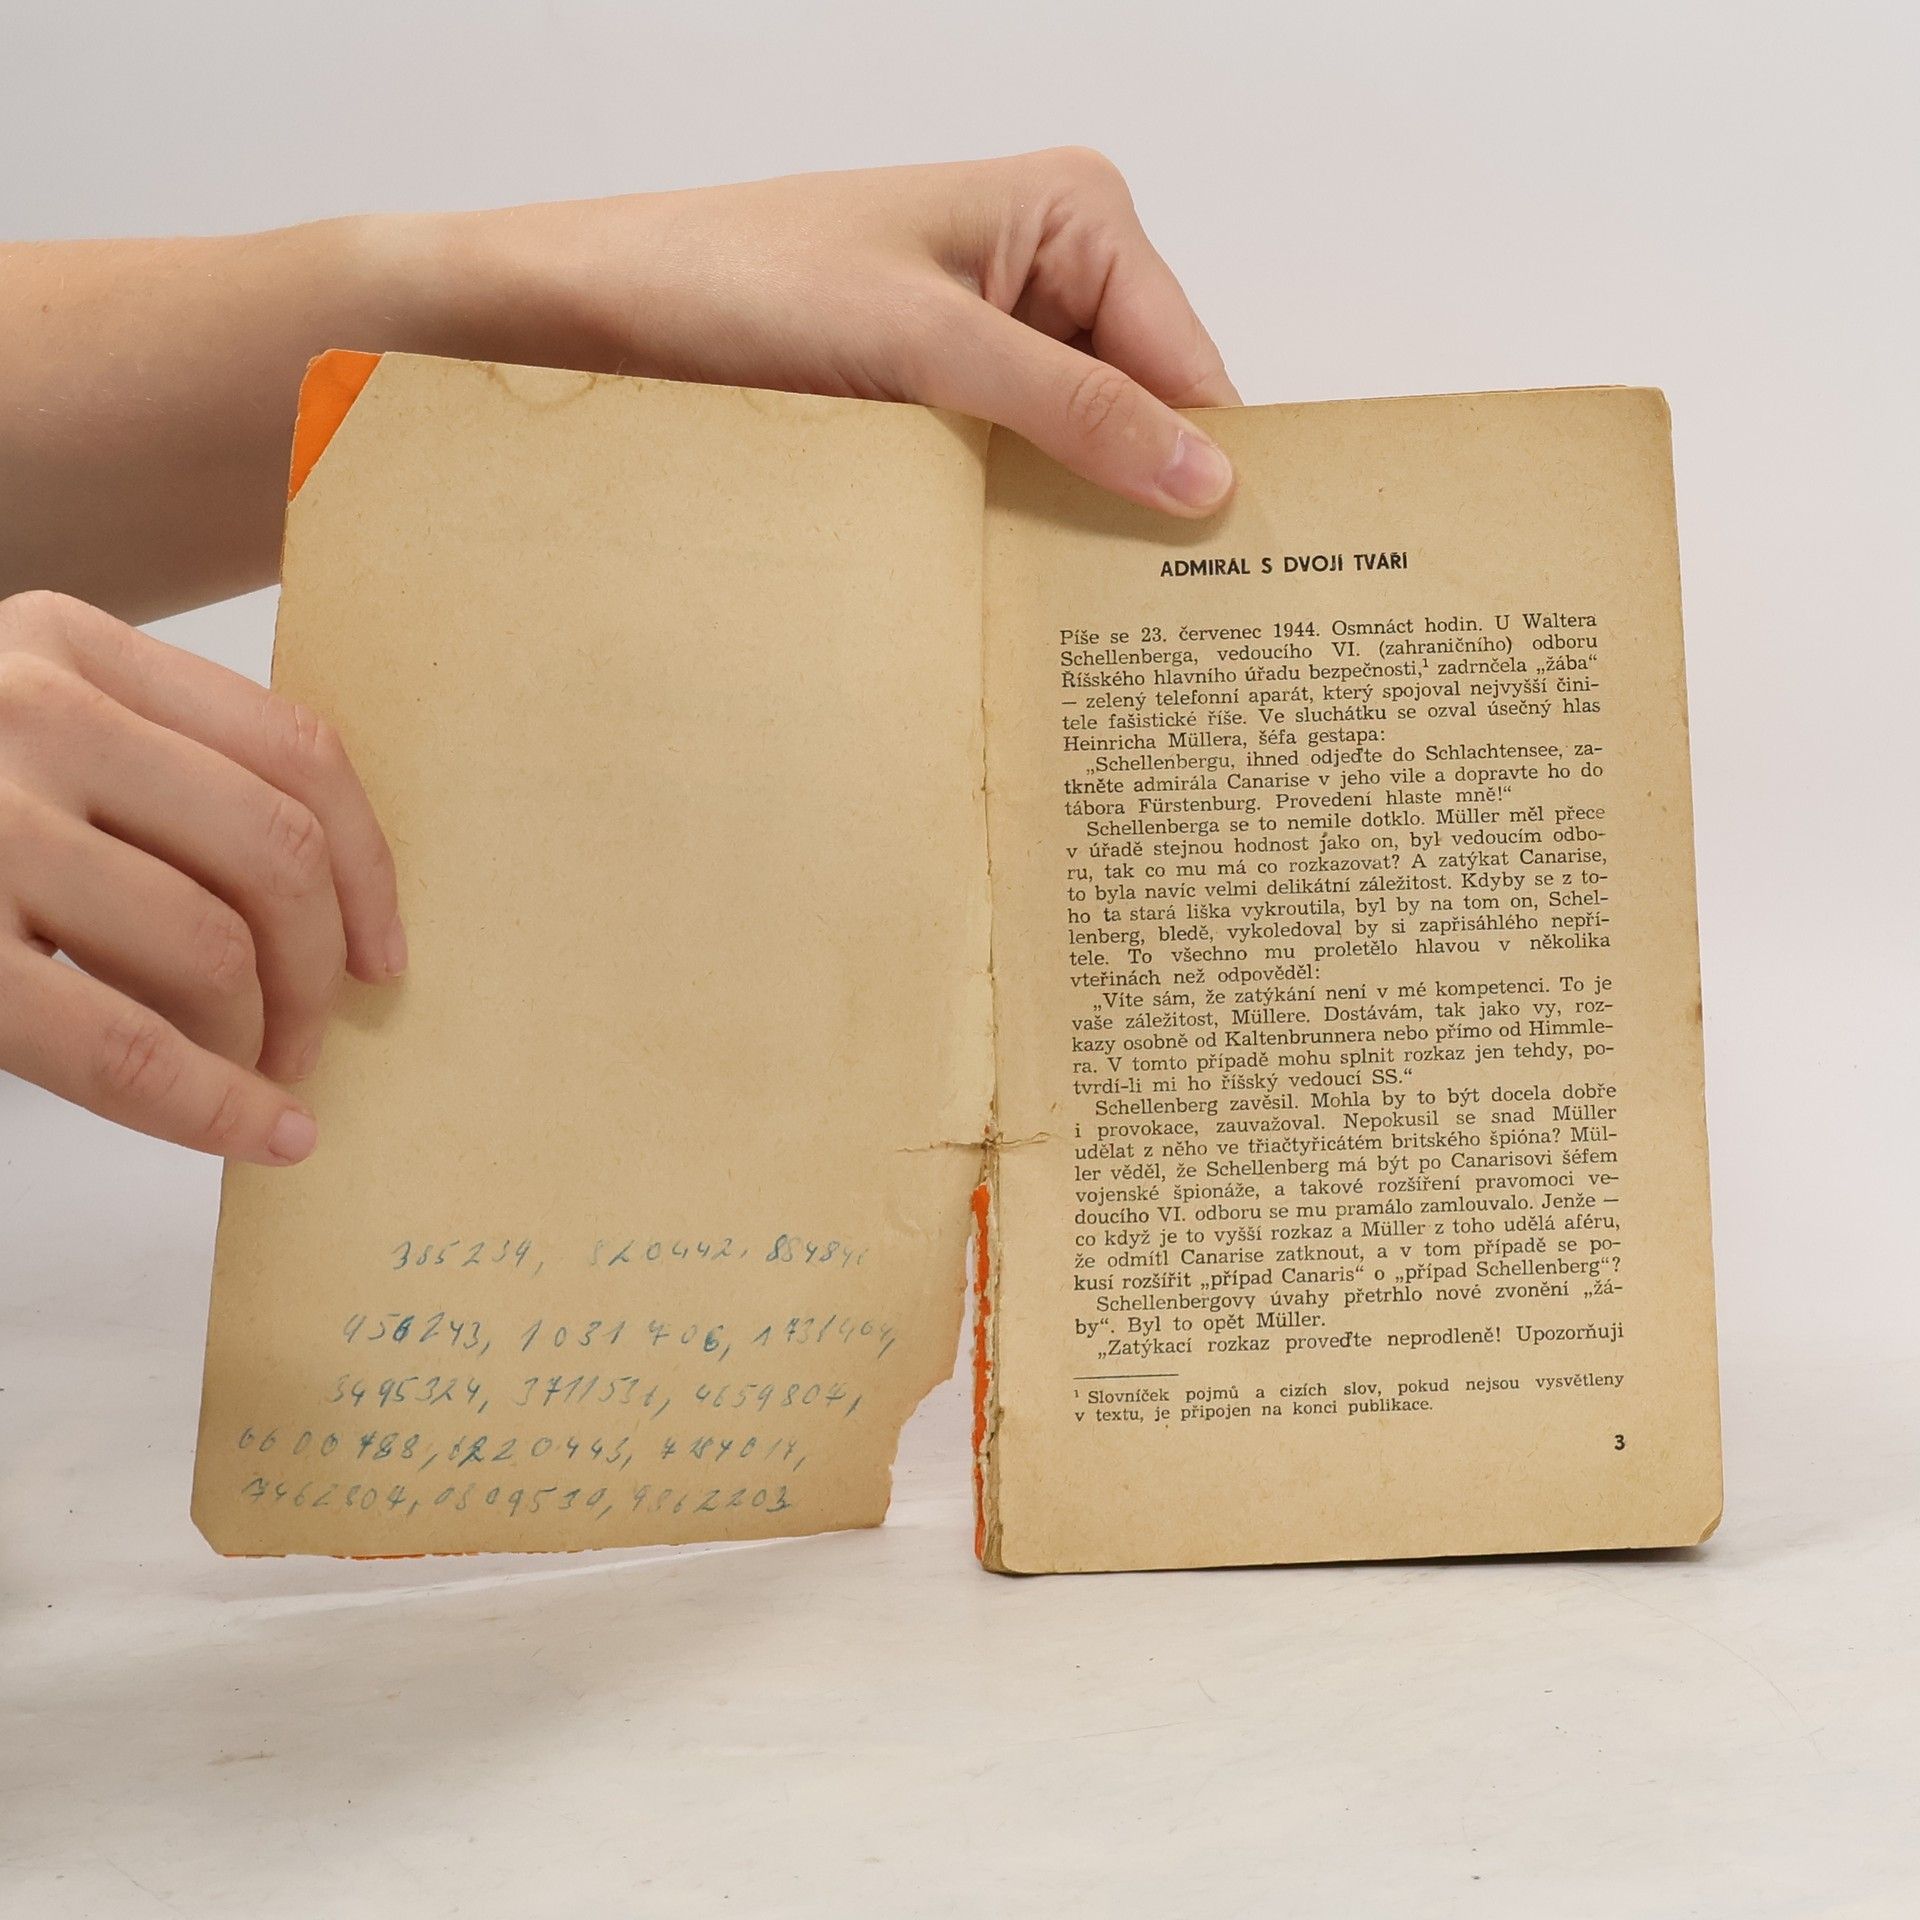 385239, 820442,
456243, 1031706, 1731404,
3495324, 3711531, 4659807,
6600788, 1220443,
7462807, 0809530, 9862203
ADMIRÁL S DVOJÍ TVÁŘÍ
Píše se 23. červenec 1944. Osmnáct hodin. U Waltera
Schellenberga, vedoucího VI. (zahraničního) odboru
Říšského hlavního úřadu bezpečnosti,¹ zadrnčela „žába“
— zelený telefonní aparát, který spojoval nejvyšší čini-
tele fašistické říše. Ve sluchátku se ozval úsečný hlas
Heinricha Müllera, šéfa gestapa:
„Schellenbergu, ihned odjeďte do Schlachtensee, za-
tkněte admirála Canarise v jeho vile a dopravte ho do
tábora Fürstenburg. Provedení hlaste mně!“
Schellenberga se to nemile dotklo. Müller měl přece
v úřadě stejnou hodnost jako on, byl vedoucím odbo-
ru, tak co mu má co rozkazovat? A zatýkat Canarise,
to byla navíc velmi delikátní záležitost. Kdyby se z to-
ho ta stará liška vykroutila, byl by na tom on, Schel-
lenberg, bledě, vykoledoval by si zapřisáhlého nepří-
tele. To všechno mu proletělo hlavou v několika
vteřinách než odpověděl:
„Víte sám, že zatýkání není v mé kompetenci. To je
vaše záležitost, Müllere. Dostávám, tak jako vy, roz-
kazy osobně od Kaltenbrunnera nebo přímo od Himmle-
ra. V tomto případě mohu splnit rozkaz jen tehdy, po-
tvrdí-li mi ho říšský vedoucí SS.“
Schellenberg zavěsil. Mohla by to být docela dobře
i provokace, zauvažoval. Nepokusil se snad Müller
udělat z něho ve třiačtyřicátém britského špióna? Mül-
ler věděl, že Schellenberg má být po Canarisovi šéfem
vojenské špionáže, a takové rozšíření pravomoci ve-
doucího VI. odboru se mu pramálo zamlouvalo. Jenže —
co když je to vyšší rozkaz a Müller z toho udělá aféru,
že odmítl Canarise zatknout, a v tom případě se po-
kusí rozšířit „případ Canaris“ o „případ Schellenberg“?
Schellenbergovy úvahy přetrhlo nové zvonění „žá-
by“. Byl to opět Müller.
„Zatýkací rozkaz proveďte neprodleně! Upozorňuji
¹ Slovníček pojmů a cizích slov, pokud nejsou vysvětleny
v textu, je připojen na konci publikace.
3